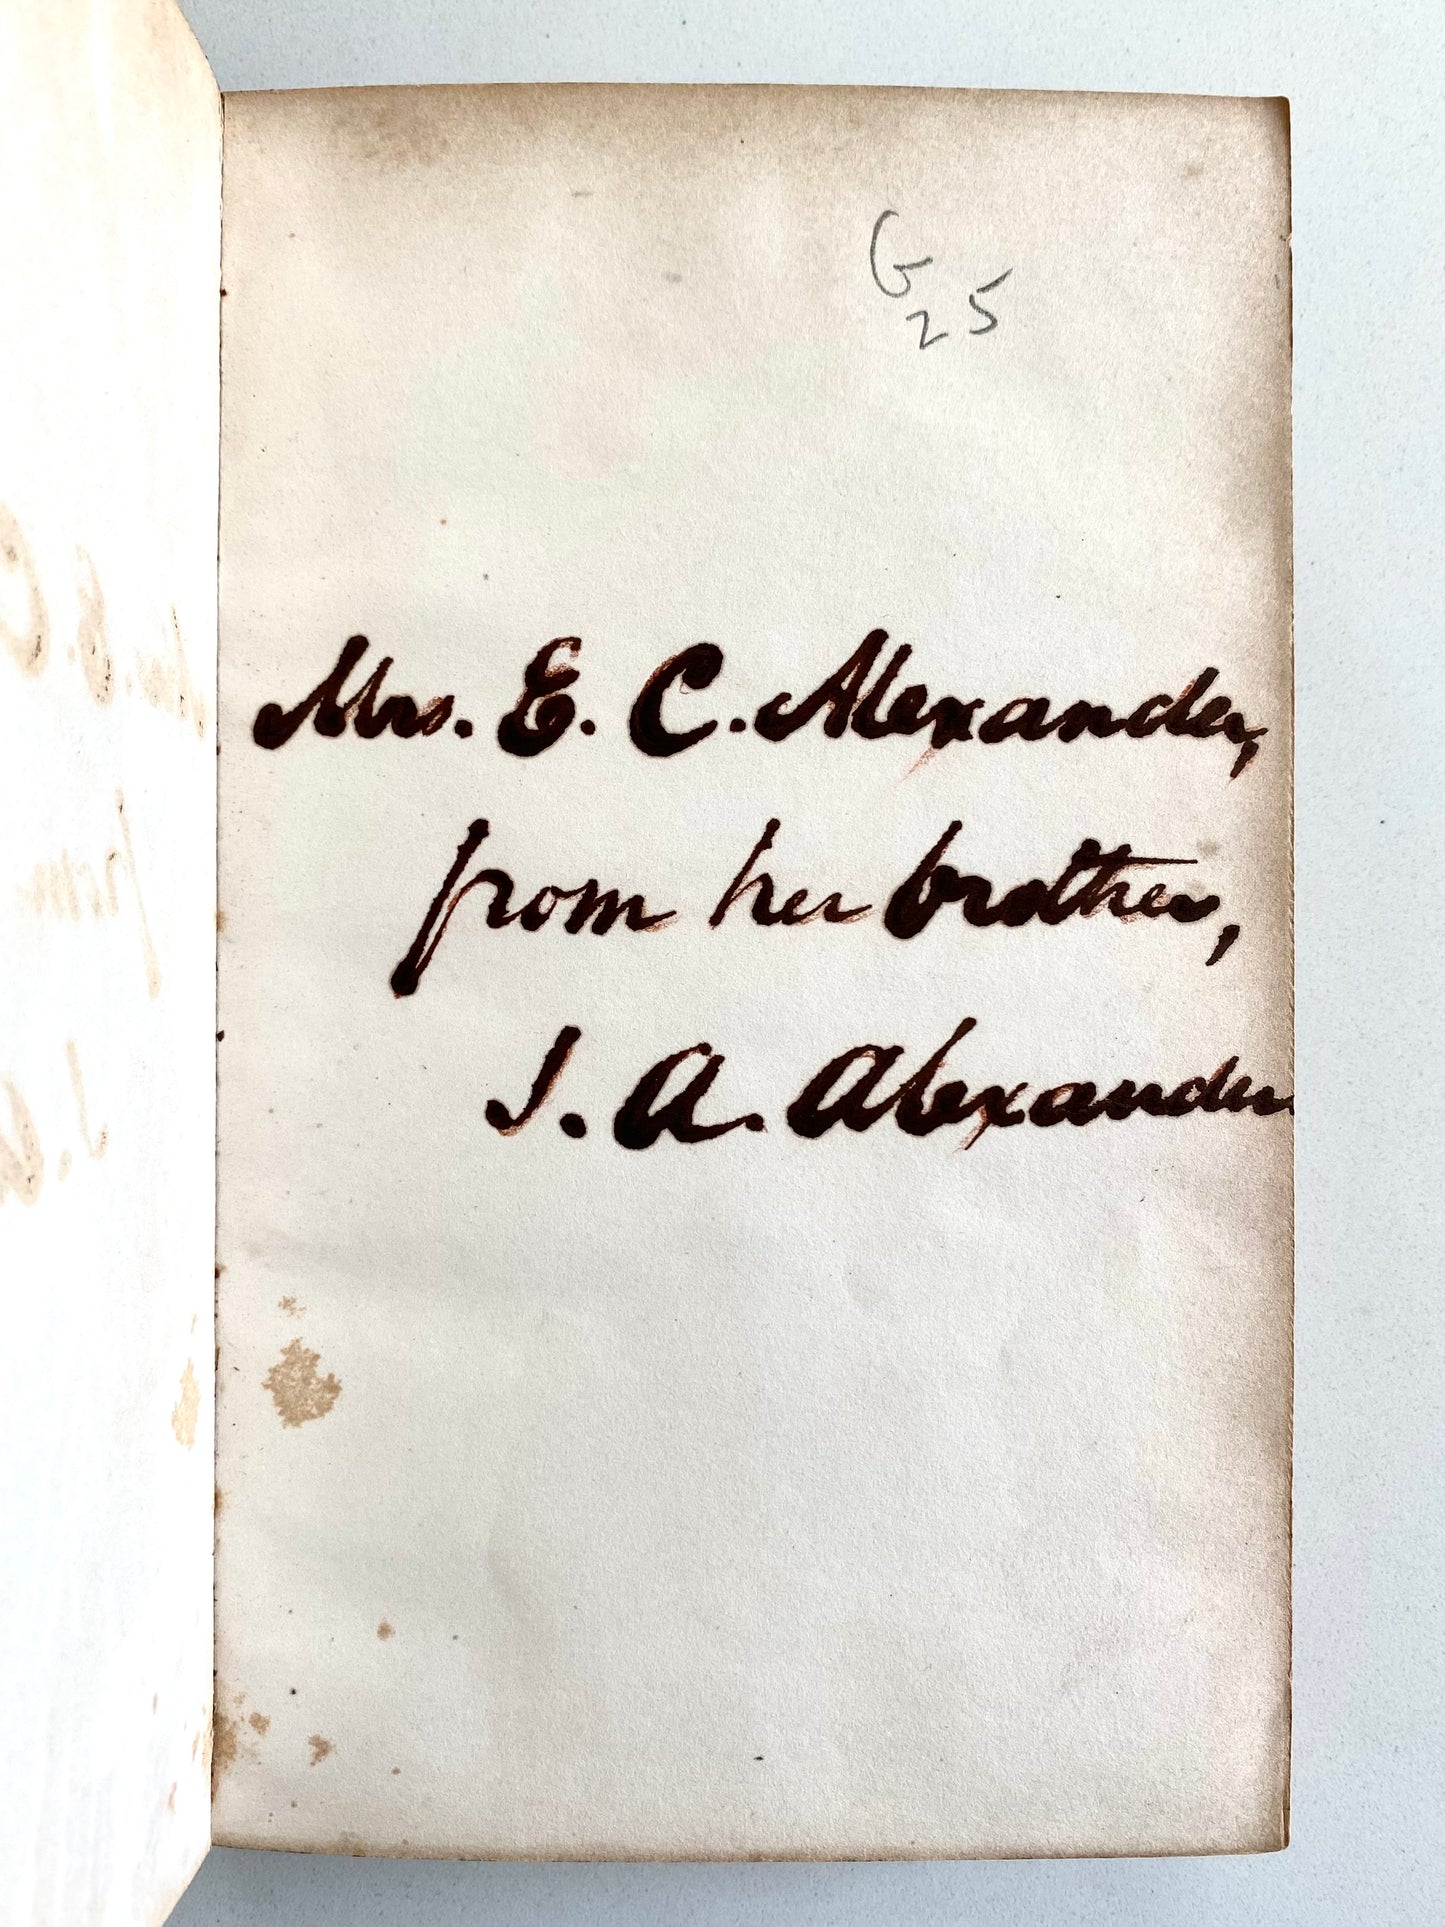 G
25
Mrs. E. C. Alexander,
from her brother,
J. A. Alexander